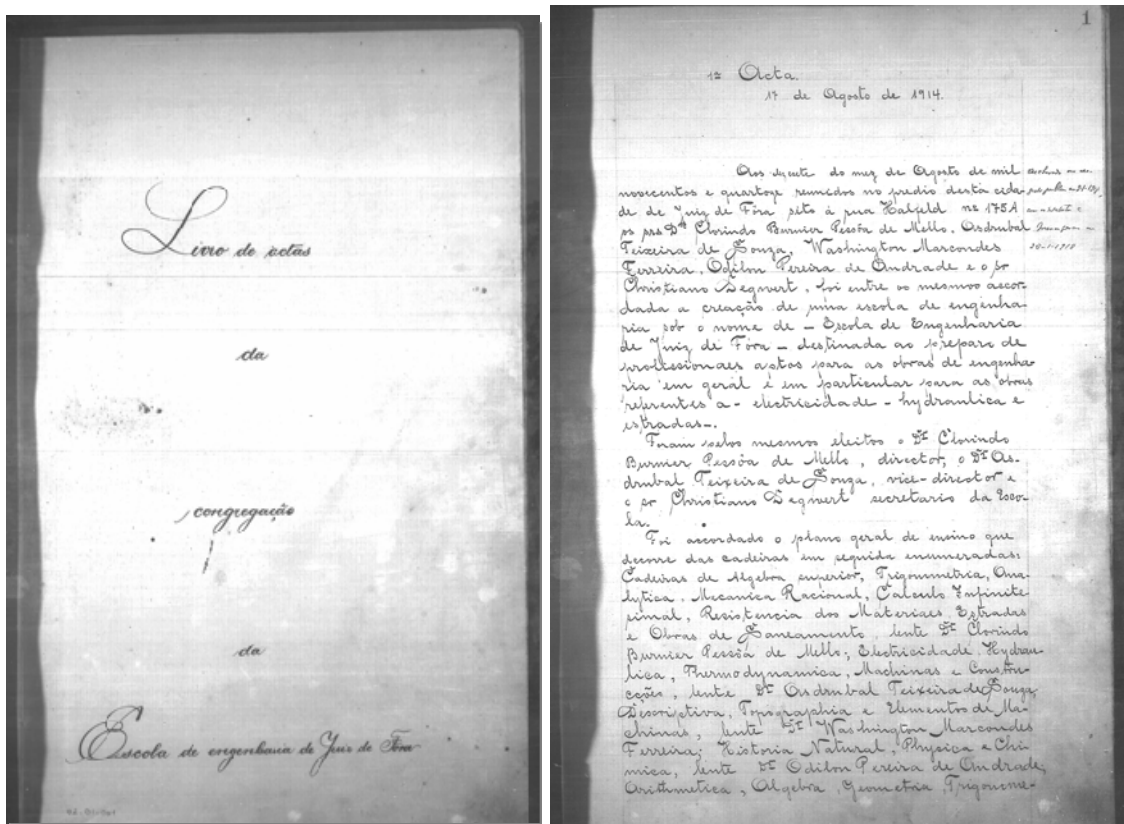 Livro de actas
da
congregação
da
Escola de engenharia de Juiz de Fóra
1
1ª Acta.
17 de Agosto de 1914.
Aos dezesete do mez de Agosto de mil
novecentos e quartoze reunidos no predio desta cida-
de de Juiz de Fóra sito á rua Halfeld nº 175A
os srs Drs Clorindo Burnier Pessôa de Mello, Osdrubal
Teixeira de Souza, Washington Marcondes
Ferreira, Odilon Pereira de Andrade e o sr
Christiano Degwert, foi entre os mesmos accor-
dada a creação de uma escola de engenha-
ria sob o nome de – Escola de Engenharia
de Juiz de Fóra – destinada ao preparo de
profissionaes aptos para as obras de engenha-
ria em geral e em particular para as obras
referentes a – electricidade – hydraulica e
estradas –.
Foram pelos mesmos eleitos o Dr Clorindo
Burnier Pessôa de Mello, director, o Dr As-
drubal Teixeira de Souza, vice-director e
o sr Christiano Degwert secretario da Esco-
la.
Foi accordado o plano geral de ensino que
decorre das cadeiras em seguida enumeradas:
Cadeiras de Algebra superior, Trigonometria, Ana-
lytica, Mecanica Racional, Calculo Infinite
simal, Resistencia dos Materiaes, Estradas
e Obras de Saneamento, lente Dr Clorindo
Burnier Pessôa de Mello; Electricidade, Hydrau-
lica, Thermodynamica, Machinas e Constru-
cções, lente Dr Asdrubal Teixeira de Souza,
Descriptiva, Topographia e Elementos de Ma-
chinas, lente Dr Washington Marcondes
Ferreira; Historia Natural, Physica e Chi
mica, lente Dr Odilon Pereira de Andrade,
Arithmetica, Algebra, Geometria, Trigonome-